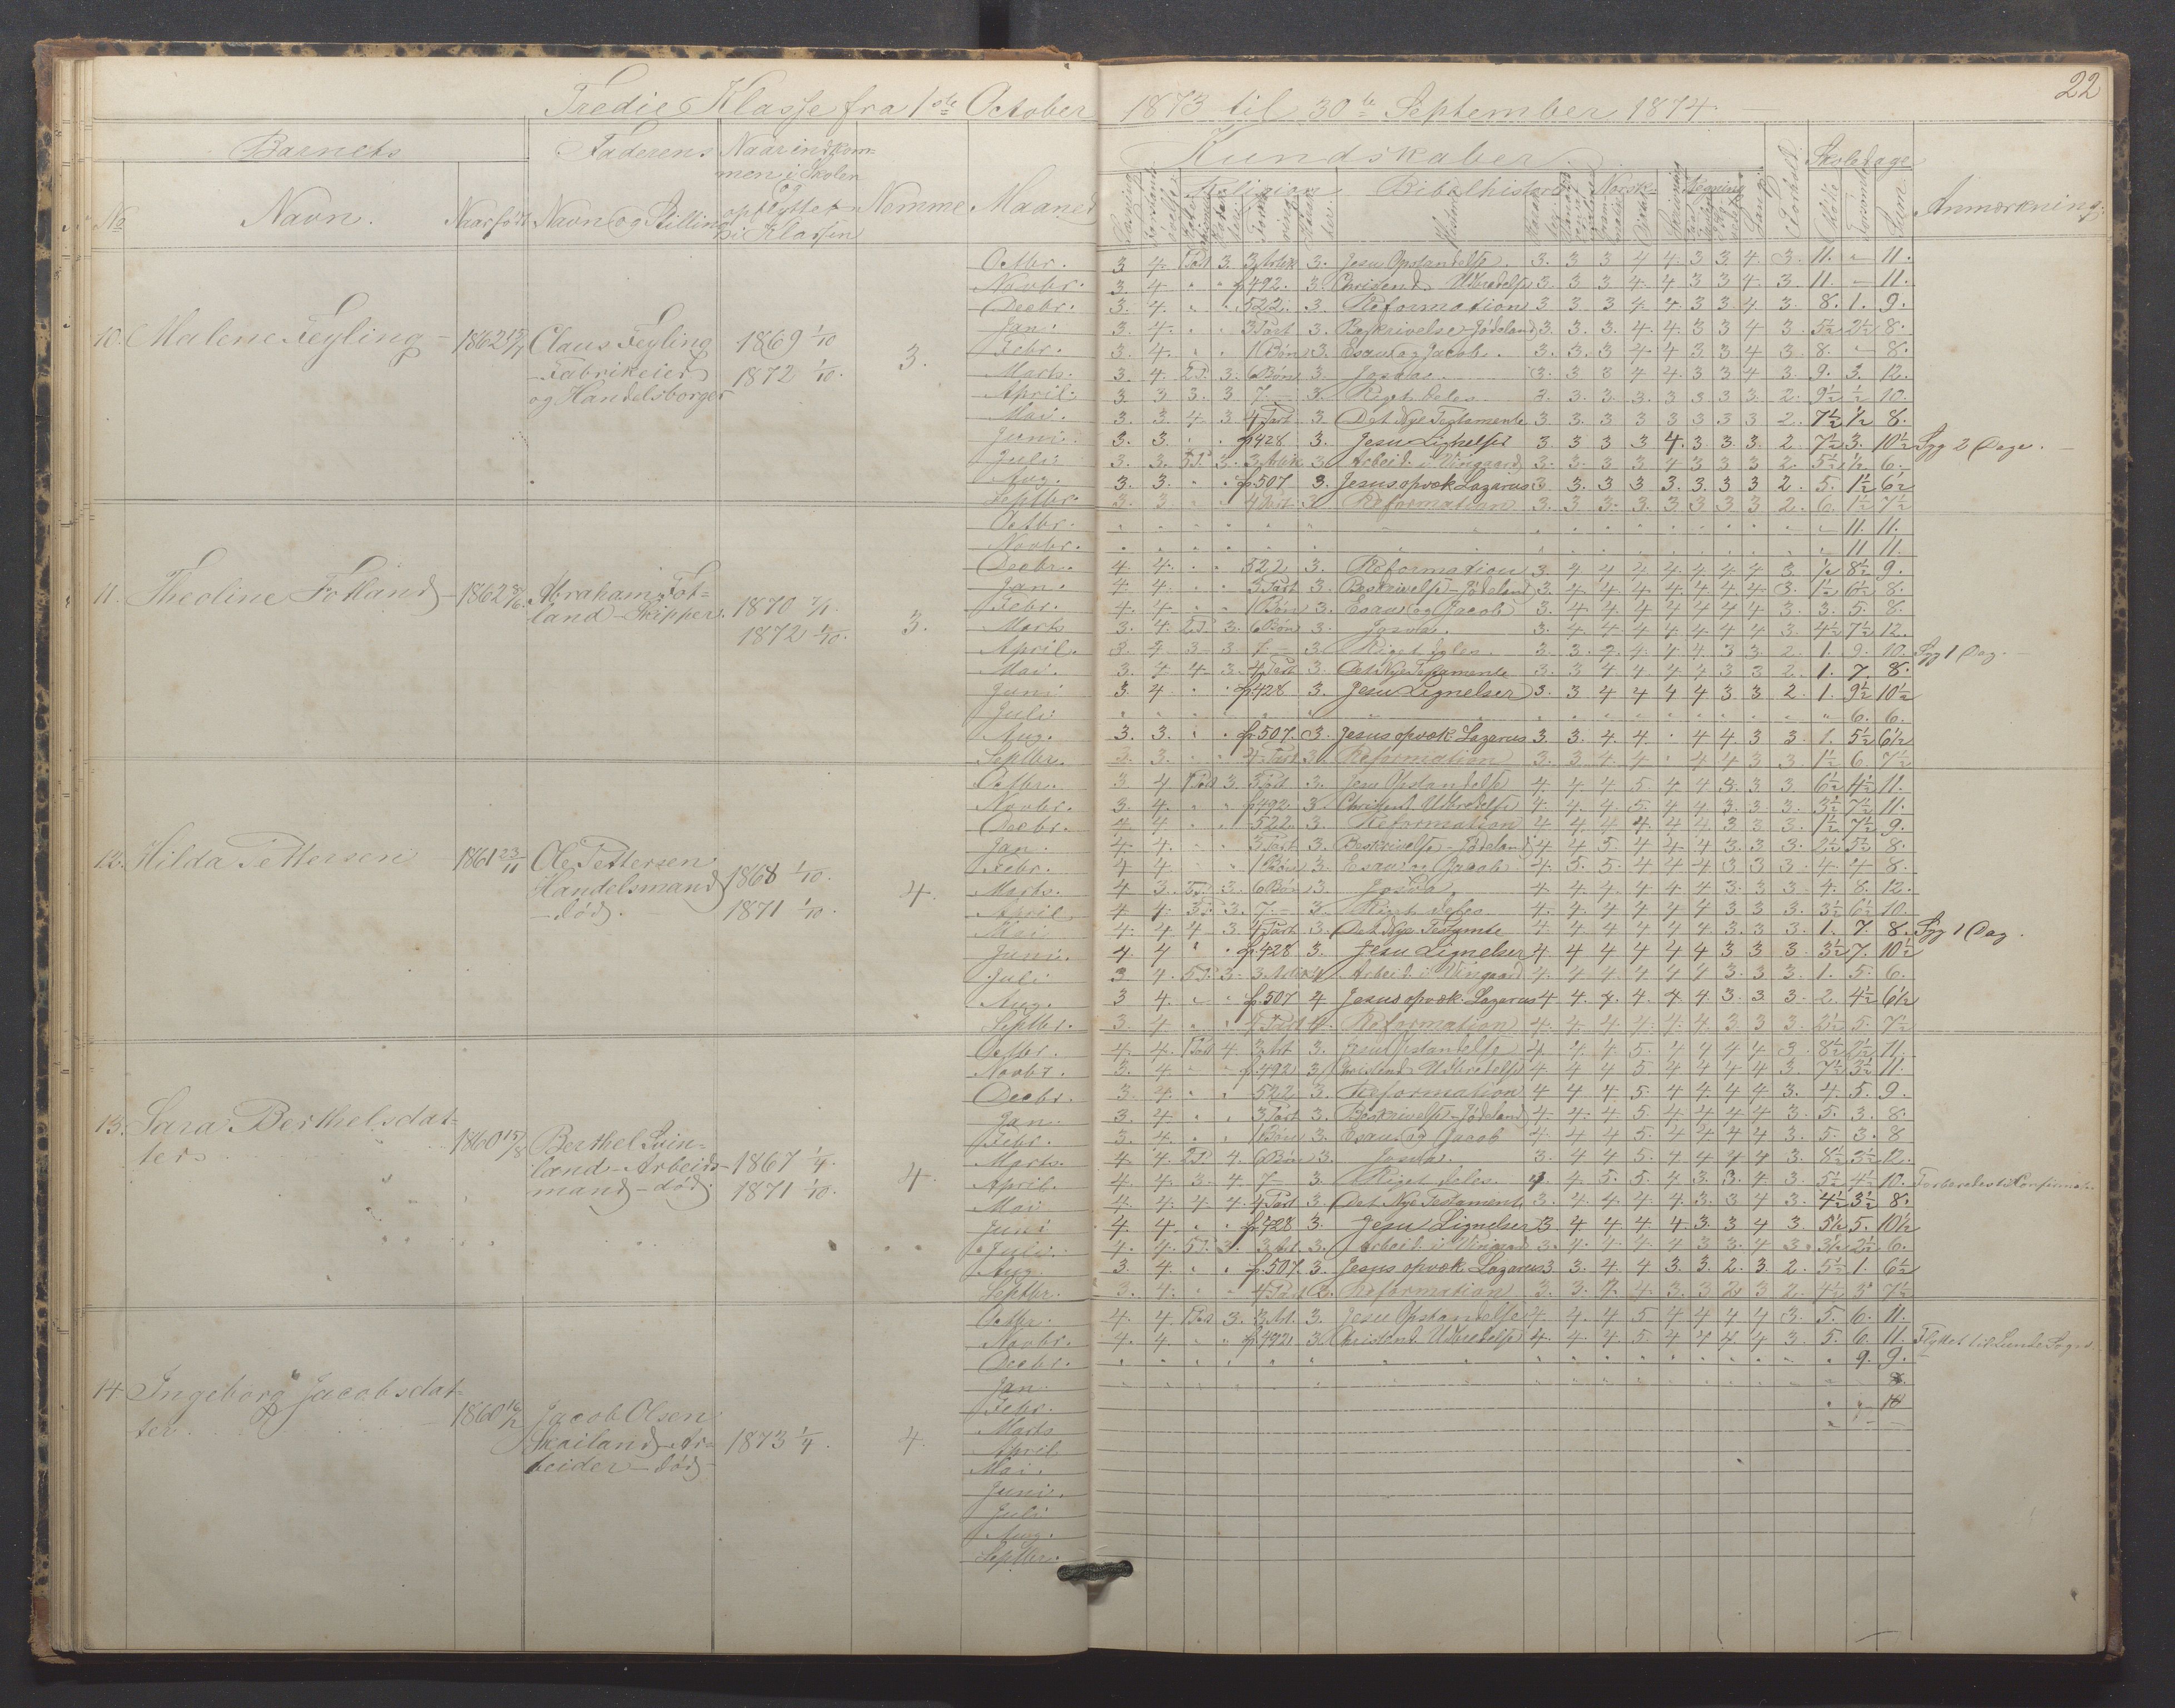 22
Tredie Klasse fra 1ste October 1873 til 30te September 1874
Barnets Faderens Naar indkom= Kundskaber Skoledage
men i Skolen
og
No Navn. Naar född Navn og Stilling opflyttet Nemme Maaned Religion Bibelhistorie Norsk Anmærkning.
i Klassen
Octbr. 3 4. 1 Part 3. 3 Artik 3. Jesu Opstandelse. 3. 3 3 4 4. 3 3 4. 3. 11. - 11.
Novbr. 3. 4. " " p492. 3. Christend. Udbredelse 3. 3 3 4 4 3 3 4. 3. 11. - 11.
Decbr. 3. 4. " " 522. 3. Reformation 3 3 3 4 4. 3 3 4 3. 8. 1. 9.
10. Malene Feyling - 1862 Claus Feyling 1869 1/10 3.
Fabrikeier 1872 1/10.
og Handelsborger
Jan. 3. 4. " " 3 Part 3. Beskrivelse Jödeland 3. 3. 3. 4. 4 3 3 4 3. 5½ 2½ 8.
Febr. 3. 4. " " 1 Bön 3. Esau og Jacob. 3. 3. 3 4 4 3. 3 4 3. 8. - 8.
Marts. 3. 4. 2 P. 3. 6 Bön 3. Josva. 3. 3 3 4 4. 3 3 4 3. 9. 3. 12.
April. 3 3 3. 3 7. - 3. Riget deles. 3. 3. 3. 3. 3 3 3 3. 2. 9½ ½ 10.
Mai. 3. 3 4 3 4 Part 3 Det Nye Testamente 3. 3. 3 3 3 3 3 3 2. 7½ ½ 8.
Juni. 3. 3. " " p428 3. Jesu Lignelser 3 3 3 3 4. 3 3. 3. 2. 7½ 3. 10½ Syg 2 Dage.
Juli 3. 3. 5 P. 3. 3 Artik 3 Arbeid. i Viingaard 3. 3. 3 3 4 3 3 3 2. 5½ ½ 6.
Aug. 3. 3. " " p507 3. Jesus opvæk. Lazarus 3 3. 3 3 3. 3. 3 3 2. 5. 1½ 6½
Septbr. 3. 3 " " 4 Part 3 Reformation 3. 3 3. 3. 3. 3 3 3 2. 6. 1½ 7½
Octbr. 11. 11.
Novbr. 11 11.
Decbr. 4. 4. " " 522 3. Reformation 3 4 4 4 4 4 4 4 3 ½ 8½ 9.
11. Theoline Fotland - 1862 Abraham Fot= 1870 3.
land - Skipper. 1872 1/10.
Jan. 4 4. " " 3 Part 3. Beskrivelse - Jödeland 3. 4. 4. 4. 4. 4. 4. 4. 3. 1½ 6½ 8.
Febr. 4. 4 " " 1 Bön 3. Esau og Jacob 3 4 4 4 4 4 4 4 3 3. 5. 8.
Marts 3. 4. 2 P. 3. 6 Bön 3. Josva. 3. 4. 4. 4. 4. 4. 4 4 3. 4½ 7½ 12.
April. 3. 4 3 3. 7. - 3. Riget deles. 3. 3. 4. 4. 4 4 3 3 2. 1. 9. 10. Syg 1 Dag.
Mai. 3. 4 4 3. 4 Part 3. Det Nye Testamente 3. 3 4 4 4 4 3 3 2. 1. 7. 8.
Juni 3. 4 " " p428 3. Jesu Lignelser 3. 3 4 4 4 4 3 3 2 1. 9½ 10½
Juli 6. 6.
Aug. 3. 3. " " p507. 3. Jesus opvæk. Lazarus 3 3. 4 4. " 4 4. 3 3. 1. 5½ 6½
Septbr. 3. 3. " " 4 Part 3. Reformation 3. 3 4 4 " 4 4 3 3 1½ 6. 7½
Octbr. 3 4 1 Part 3. 3 Part 3. Jesu Opstandelse 4 4 4 5 4 4 3. 3 3. 6½ 4½ 11.
Novbr. 3. 4. " " p492. 3. Christend. Udbredelse 4. 4. 4 5. 4 4 3. 3. 3. 3½ 7½ 11.
Decbr. 4 4 " " 522. 3. Reformation 4 4 4 4 4 4 3 3 3. 1½ 7½ 9.
12. Hilda Pettersen 1861 23/11 Ole Pettersen 1868 1/10. 4.
Handelsmand 1871 1/10.
- död.
Jan. 4 4. " " 3 Part 3. Beskrivelse - Jödeland 4 4 5 4 4 4 3. 3. 3. 2½ 5½ 8.
Febr. 4 4 " " 1 Bön 3. Esau og Jacob 4. 5. 5. 4 4 4 3 3 3 4. 4 8.
Marts. 4 3. 2 P. 3. 6 Bön 3. Josva. 4 4 4 4 4 4 3. 3 3 4. 8. 12.
April 4 4. 3 P. 3. 7. - 3. Riget deles 4. 4. 4 4 4 4 3 3 3. 3½ 6½ 10.
Mai 4. 4 4 3 4 Part 3. Det Nye Testamte 4. 4 4 4 4 4 3. 3 3. 1. 7. 8. Syg 1 Dag.
Juni. 4. 4 " " p428 3. Jesu Lignelser 4 4 4 4 4 4 3 3 3. 3½ 7. 10½
Juli 3 4. 5 P. 3. 3 Artik 4 Arbeid. i Viingaard 4. 4 4 4 4 4 3. 3. 3. 1. 5. 6.
Aug. 3 4. " " p.507 4 Jesus opvæk. Lazarus 4 4. 4. 4. 4. 4. 3. 3. 3. 2. 4½ 6½
Septbr. 3. 4. " " 4 Part 4. Reformation 4. 4 4 4. 4. 4. 3 3 3. 2½ 5. 7½
Octbr. 4. 4. 1 Part 4. 3 Art. 3. Jesu Opstandelse 4. 4 4 5. 4 4 4 4 3. 8½ 2½ 11.
Novbr. 3. 4. " " p.492 3. Christend. Udbredelse 4 4 4 5 4 4 4 4 3. 7½ 3½ 11.
Decbr. 3 4. " " 522 3. Reformation 4 4 4 5. 4 4. 4 4 3. 4. 5. 9.
13. Sara Berthelsdat= 1860 15/8 Berthel Svin= 1867 1/4. 4.
ter land - Arbeids= 1871 1/10.
mand - död.
Jan. 3. 4. " " 3 Part 3. Beskrivelse - Jödeland 4 4. 4 5 4 4 4 4 3. 5. 3. 8.
Febr. 3. 4. " " 1 Bön 3. Esau og Jacob 4. 4 4 5. 4 4 4 4 3. 5. 3. 8
Marts. 4 4. 2 P. 4. 6 Bön 3. Josva. 3. 4 4 5. 4 4 4 4 3. 8½ 3½ 12.
April. 4. 4. 3. 4 7 - 3. Riget deles. 4 4 5. 5. 4 3. 3. 4 3. 5½ 4½ 10.
Mai 4. 4. 4. 4. 4 Part 3. Det Nye Testament 3. 4. 4 4. 4. 3. 3 4 3. 4½ 3½ 8.
Juni 4. 4. " " p.428 3. Jesu Lignelser 3. 4 4 4. 4. 3. 3 4 3. 5½ 5. 10½
Juli. 4. 4. 5 P. 3. 3 Art. 3. Arbeid. i Viingaard 3. 4. 4. 4. 4 3 3. 4 3. 3½ 2½ 6.
Aug. 3. 4. " " p.507. 3. Jesus opvæk. Lazarus 3 3. 4. 4 3. 3. 2. 3. 2. 5½ 1. 6½
Septbr. 3. 4. " " 4 Part 3. Reformation 3. 3. 4. 4. 3. 3 2 3 2. 4½ 3 7½
Octbr. 4. 4. 1 Part 3. 3 Art. 3. Jesu Opstandelse 4 4. 4 5 4 4 4 4 3. 5. 6. 11.
Novbr. 4. 4. " " p.492 3. Christend. Udbredelse 4. 4. 4. 5. 4 4 4 4 3. 5. 6. 11. Flyttet til Lunde Sogn.
Decbr. 9. 9.
14. Ingeborg Jacobsdat= 1860 Jacob Olsen 1873 1/4. 4.
ter Skailand - Ar=
beider - död
Jan. 8.
Febr.
Marts
April
Mai.
Juni.
Juli
Aug.
Septbr.